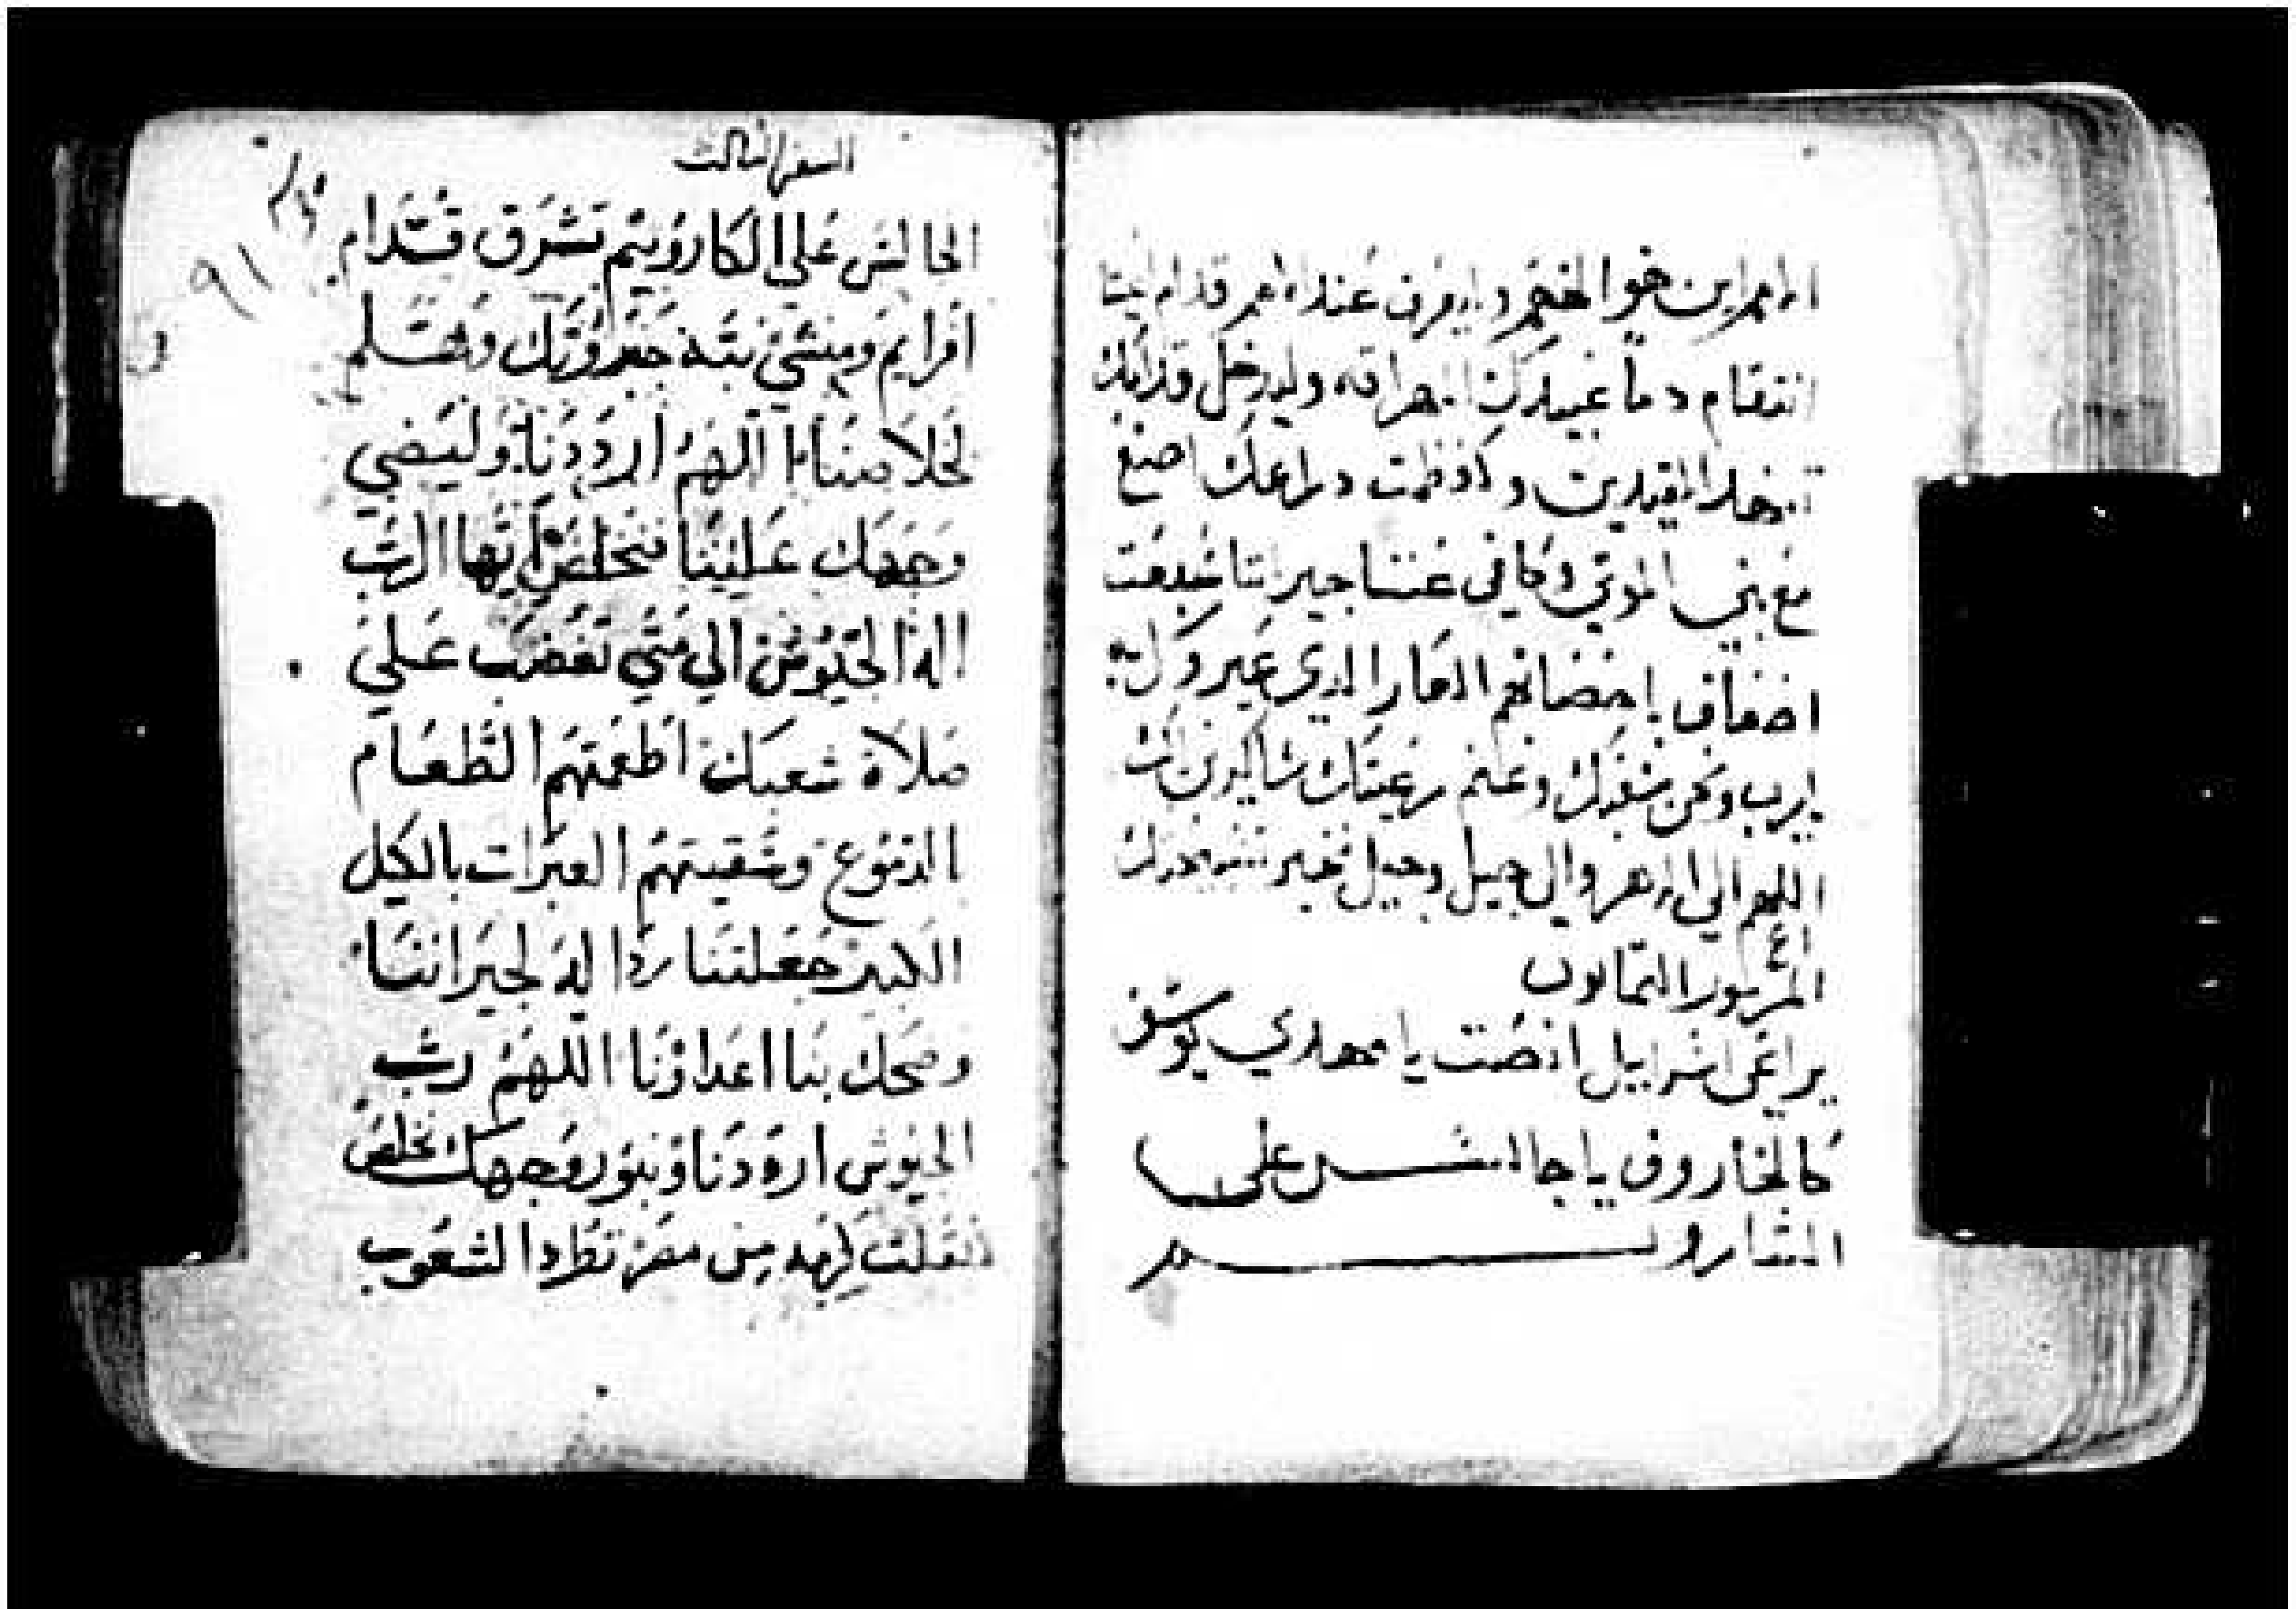 انتقام دما عبيدك المهراقه وليدخل قدامك
تنهد المقيدين وكعظمت دراعك اصنع
مع بني الموتي وكافي عننا جيراننا سبعت
اضعاف باحضانهم العار الدي عيروك به
يارب ونحن شعبك وغنم رعيتك شاكرين لك
اللهم الي الدهر والي جيل وجيل نخبر تسبحتك
المزمور التمانون
يراعي اسراييل انصت يا مهدي يوسف
كالخاروف يا جالس على
الشاروبيم
السفر التالت
الجالس علي الكاروبيم تشرق قدام
افرايم ومنشي نبته جبروتك وهتلم
لخلاصنا اللهم ارددنا وليضي
وجهك علينا فنخلص ايها الرب
اله الجيوش الي متي تغضب علي
صلاة شعبك اطعمتهم الطعام
الدموع وسقيتهم العبرات بالكيل
الكبير جعلتنا ردا اله لجيراننا
وضحك بنا اعداونا اللهم رب
الجيوش ارددنا وبنور وجهك نخلص
نقلت كرمه من مصر تطرد الشعوب
٩١